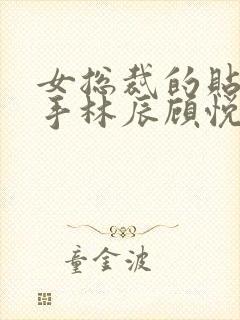 女总裁的贴
手林辰顾悦
童金波